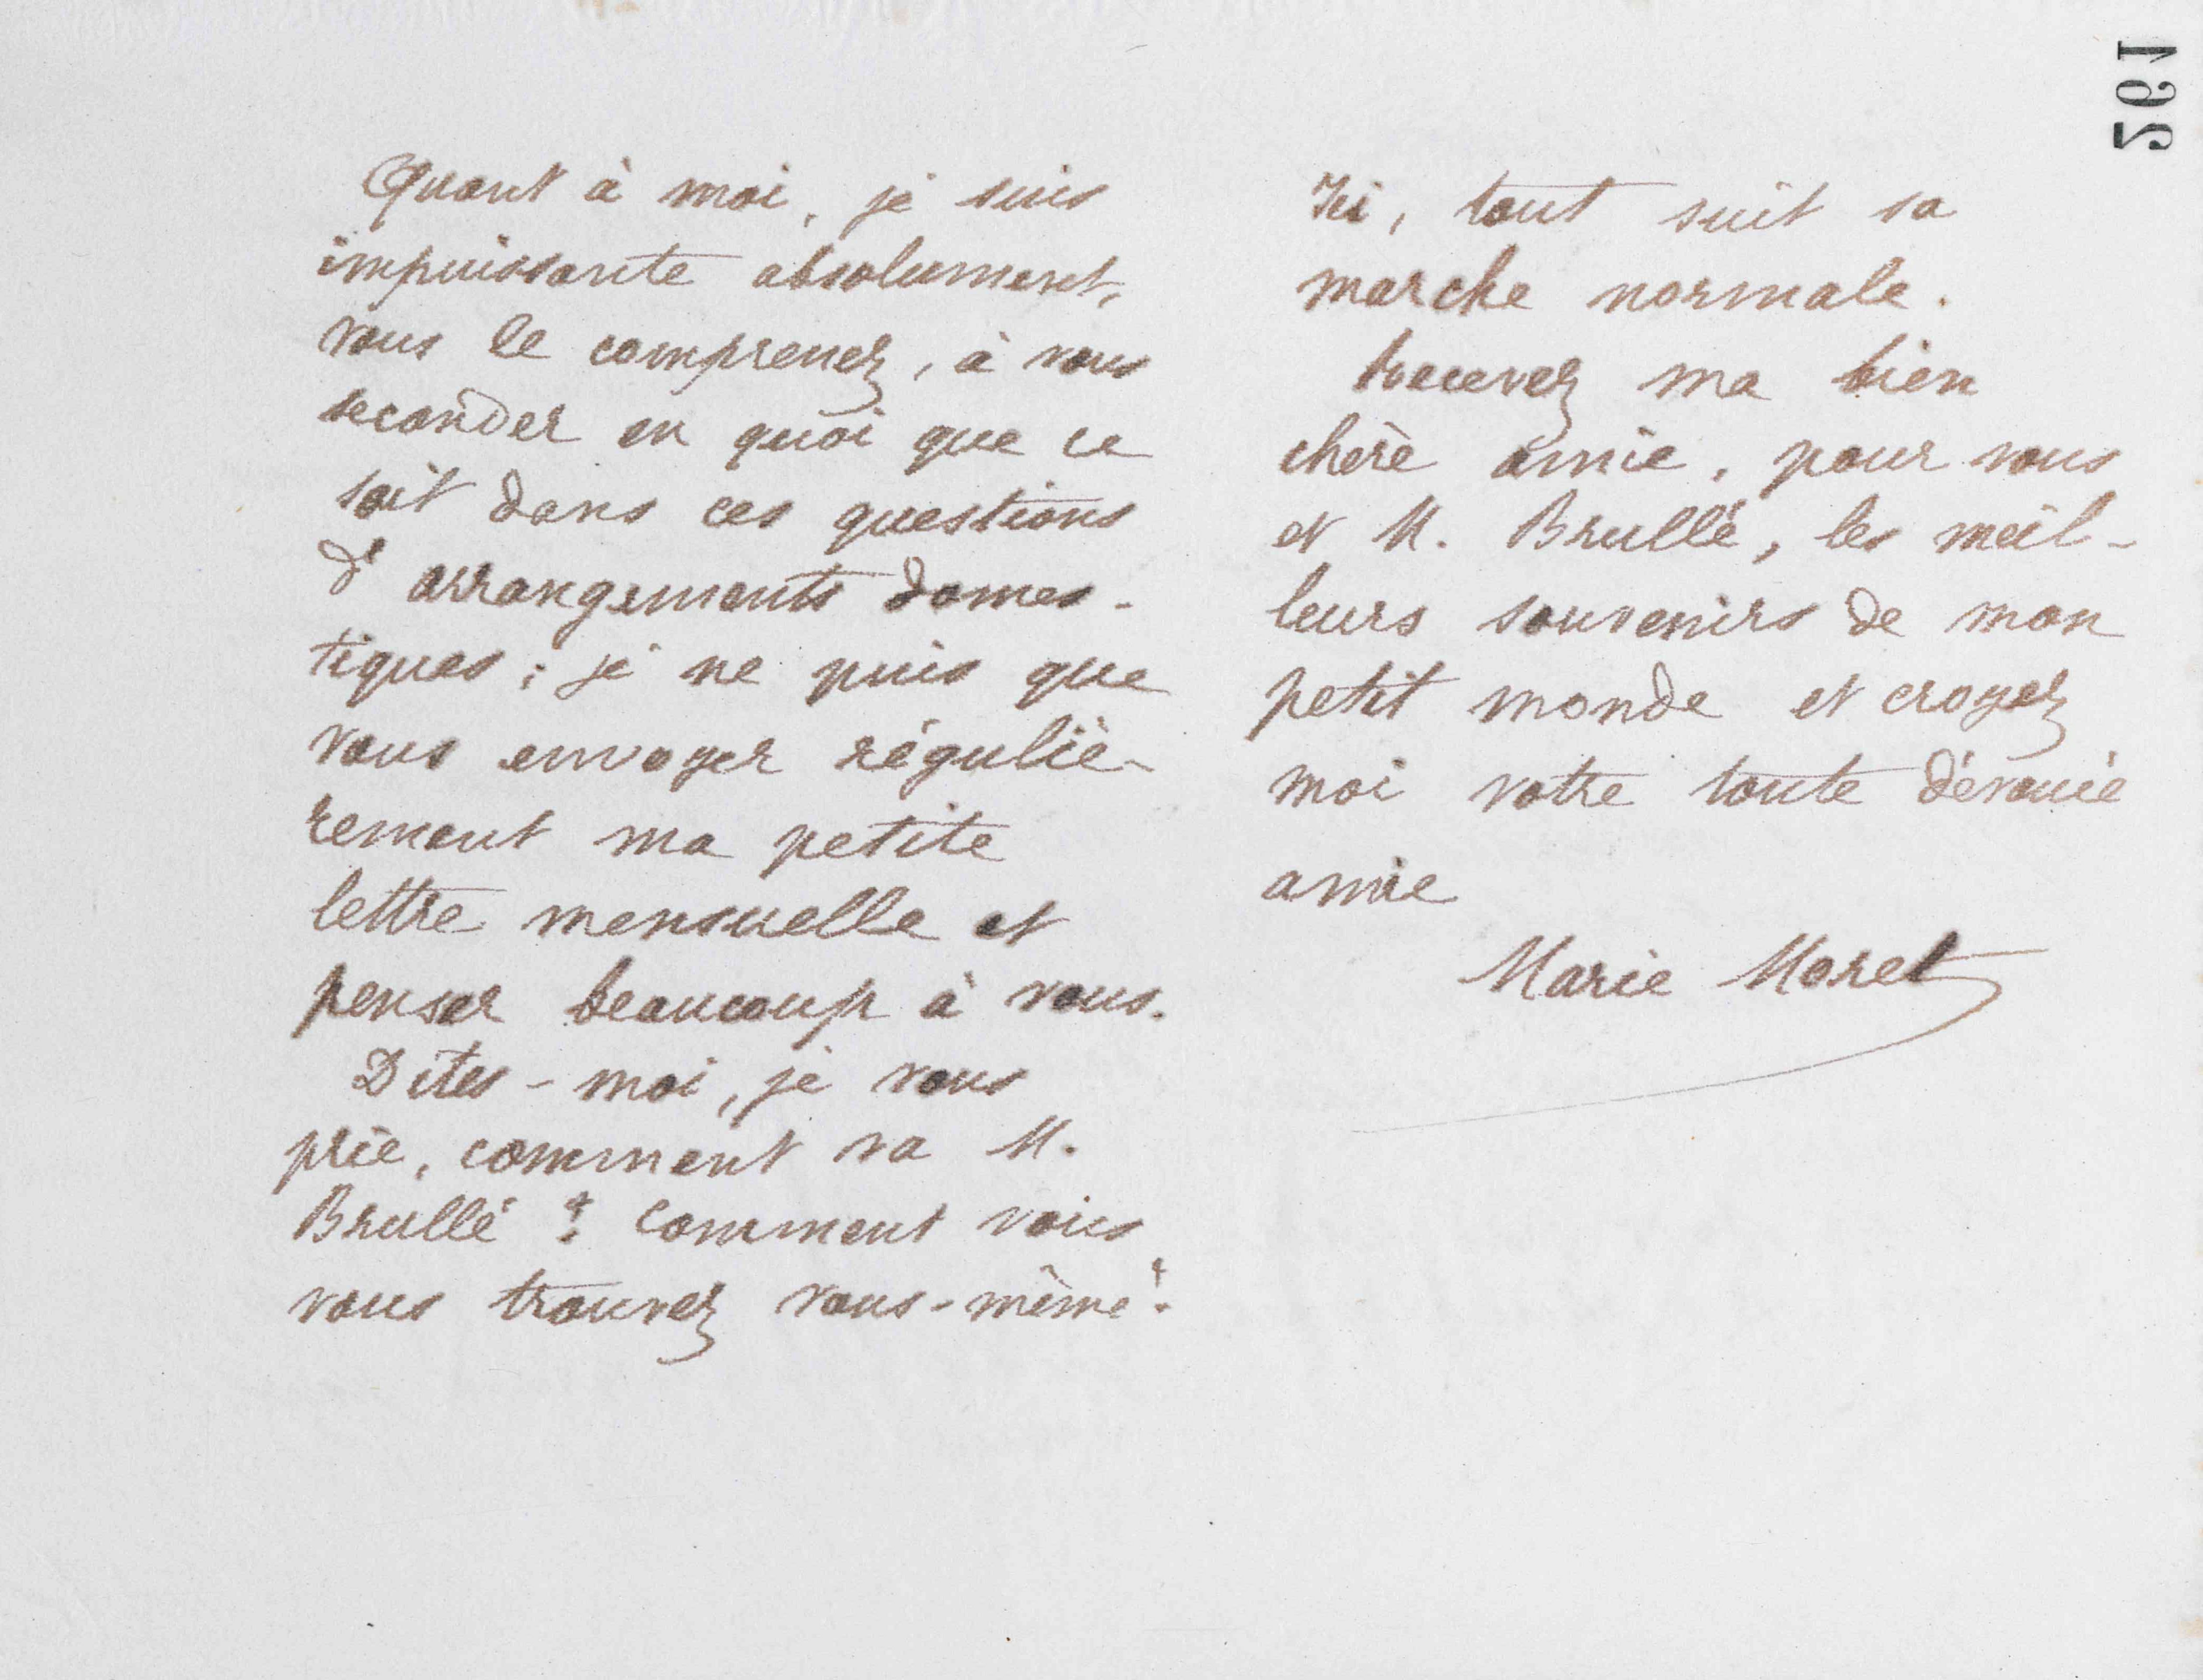 Quant à moi, je suis
impuissante absolument,
vous le comprenez, à vous
seconder en quoi que ce
soit dans ces questions
d'arrangements domes-
tiques ; je ne puis que
vous envoyer réguliè-
rement ma petite
lettre mensuelle et
penser beaucoup à vous.
Dites-moi, je vous
prie, comment va M.
Brullé ? Comment vous
vous trouvez vous-même ?
Ici, tout suit sa
marche normale.
Recevez ma bien
chère amie, pour vous
et M. Brullé, les meil-
leurs souvenirs de mon
petit monde et croyez
moi votre toute dévouée
amie
Marie Moret
195